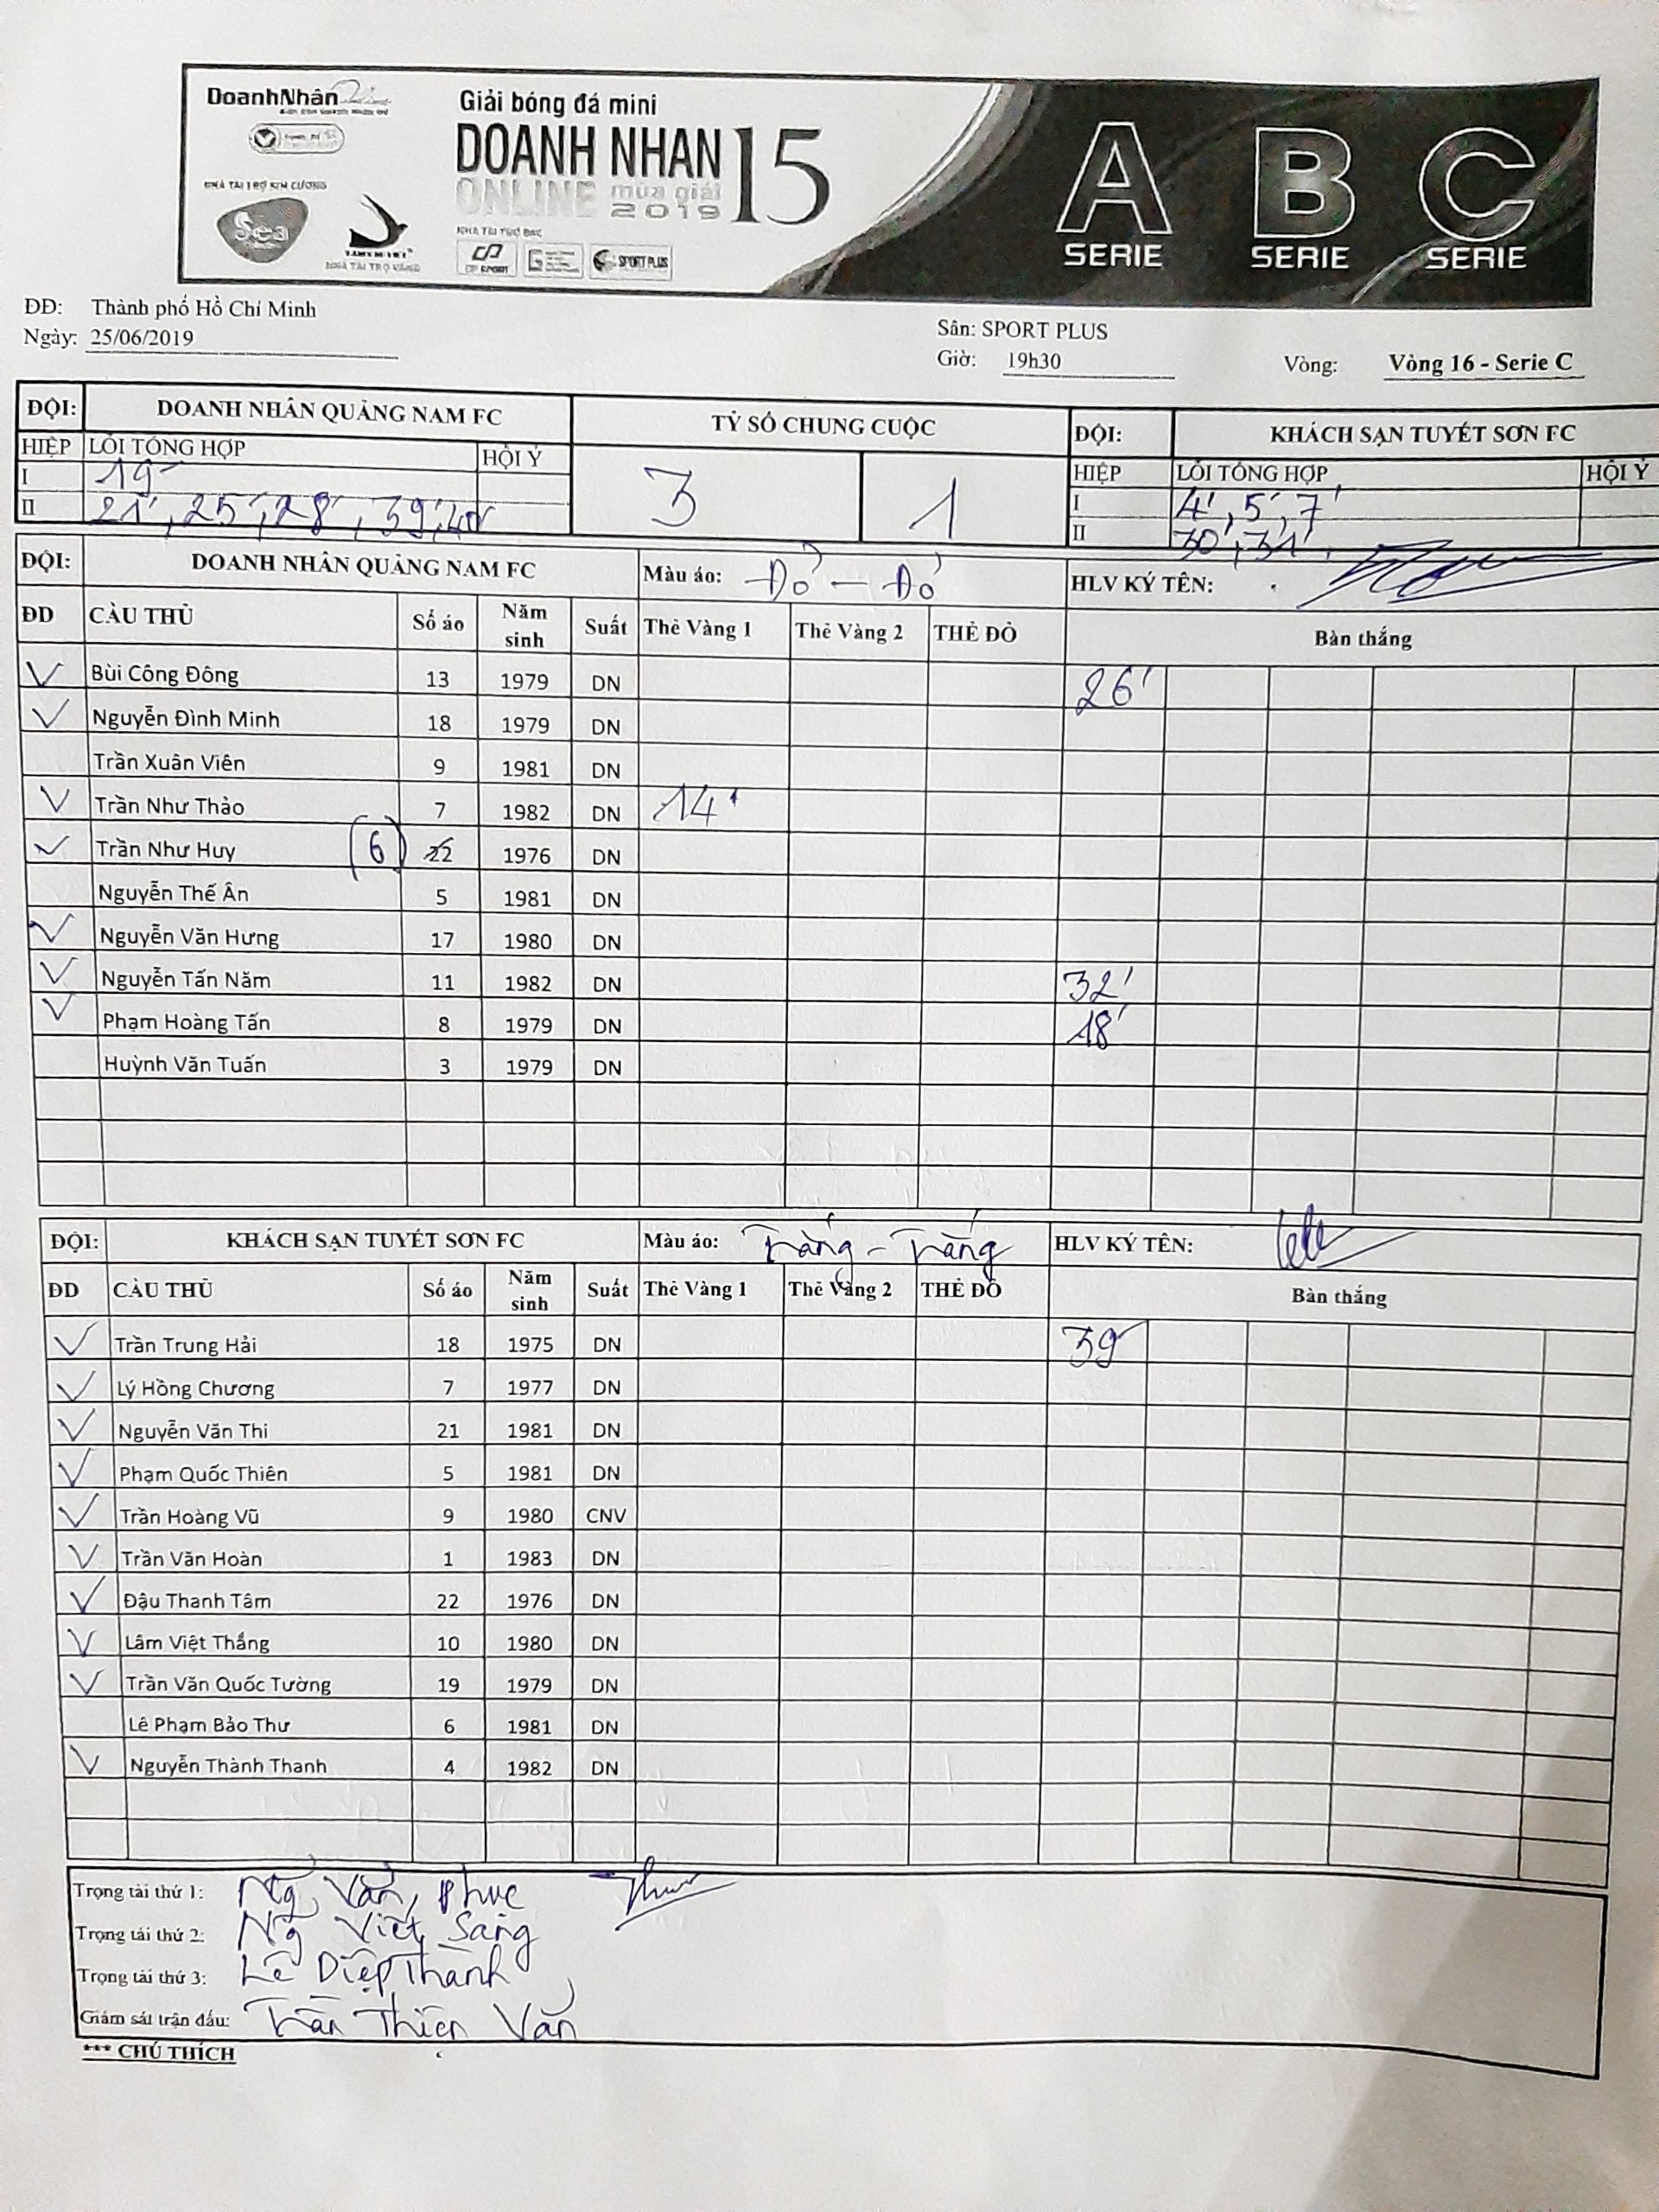 DoanhNhân
Giải bóng đá mini
DOANH NHAN 15
ONLINE mùa giải
2019
NHÀ TÀI TRỢ KIM CƯƠNG
Sea
NHÀ TÀI TRỢ VÀNG
NHÀ TÀI TRỢ BẠC
SPORT
SPORT PLUS
A B C
SERIE SERIE SERIE
ĐĐ: Thành phố Hồ Chí Minh
Sân: SPORT PLUS
Ngày: 25/06/2019
Giờ: 19h30 Vòng: Vòng 16 - Serie C
ĐỘI: DOANH NHÂN QUẢNG NAM FC TỶ SỐ CHUNG CUỘC ĐỘI: KHÁCH SẠN TUYẾT SƠN FC
HIỆP LỖI TỔNG HỢP HỘI Ý 3 1 HIỆP LỖI TỔNG HỢP HỘI Ý
I 19' I 4', 5', 7'
II 21', 25', 28', 39', II 30', 31'
ĐỘI: DOANH NHÂN QUẢNG NAM FC Màu áo: Đỏ - Đỏ HLV KÝ TÊN:
ĐD CẦU THỦ Số áo Năm sinh Suất Thẻ Vàng 1 Thẻ Vàng 2 THẺ ĐỎ Bàn thắng
Bùi Công Đông 13 1979 DN 26'
Nguyễn Đình Minh 18 1979 DN
Trần Xuân Viên 9 1981 DN
Trần Như Thảo 7 1982 DN 14'
Trần Như Huy (6) 22 1976 DN
Nguyễn Thế Ân 5 1981 DN
Nguyễn Văn Hưng 17 1980 DN
Nguyễn Tấn Năm 11 1982 DN 32'
Phạm Hoàng Tấn 8 1979 DN 18'
Huỳnh Văn Tuấn 3 1979 DN
ĐỘI: KHÁCH SẠN TUYẾT SƠN FC Màu áo: Trắng - Trắng HLV KÝ TÊN:
ĐD CẦU THỦ Số áo Năm sinh Suất Thẻ Vàng 1 Thẻ Vàng 2 THẺ ĐỎ Bàn thắng
Trần Trung Hải 18 1975 DN 39'
Lý Hồng Chương 7 1977 DN
Nguyễn Văn Thi 21 1981 DN
Phạm Quốc Thiên 5 1981 DN
Trần Hoàng Vũ 9 1980 CNV
Trần Văn Hoàn 1 1983 DN
Đậu Thanh Tâm 22 1976 DN
Lâm Việt Thắng 10 1980 DN
Trần Văn Quốc Tường 19 1979 DN
Lê Phạm Bảo Thư 6 1981 DN
Nguyễn Thành Thanh 4 1982 DN
Trọng tài thứ 1: Ng Văn Phúc
Trọng tài thứ 2: Ng Viết Sang
Trọng tài thứ 3: Lê Diệp Thanh
Giám sát trận đấu: Trần Thiện Văn
*** CHÚ THÍCH